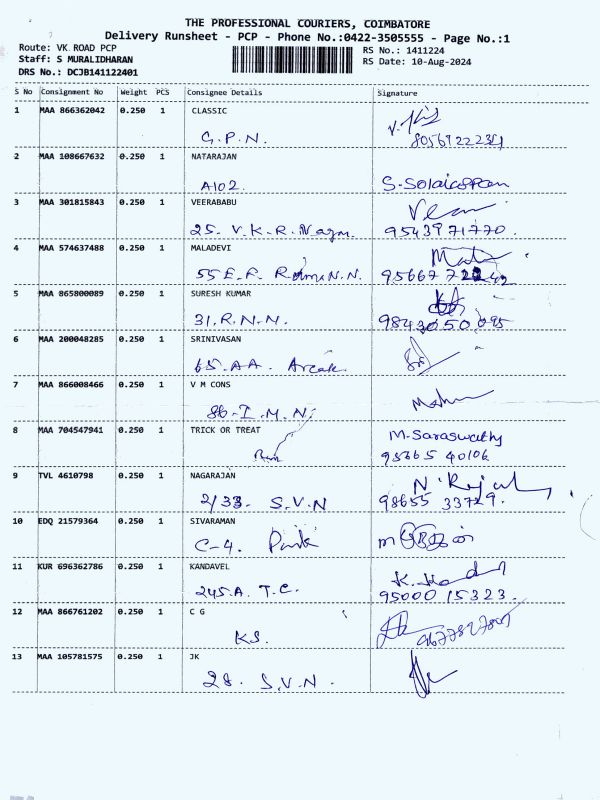 THE PROFESSIONAL COURIERS, COIMBATORE
Delivery Runsheet - PCP - Phone No.:0422-3505555 - Page No.:1
Route: VK ROAD PCP
Staff: S MURALIDHARAN
DRS No.: DCJB141122401
RS No.: 1411224
RS Date: 10-Aug-2024
S No Consignment No Weight PCS Consignee Details Signature
1 MAA 866362042 0.250 1 CLASSIC
G.P.N.
2 MAA 108667632 0.250 1 NATARAJAN
A102.
3 MAA 301815843 0.250 1 VEERABABU
25. V.K.R. Nagar. 9543971770.
4 MAA 574637488 0.250 1 MALADEVI
55 E.F. N.N.
5 MAA 865800089 0.250 1 SURESH KUMAR
31.R.N.N. 9843050095
6 MAA 200048285 0.250 1 SRINIVASAN
65.AA.
7 MAA 866008466 0.250 1 V M CONS
86-I.M.N.
8 MAA 704547941 0.250 1 TRICK OR TREAT M.Saraswathy
95365 40106
9 TVL 4610798 0.250 1 NAGARAJAN
2/33. S.V.N 98655 33729.
10 EDQ 21579364 0.250 1 SIVARAMAN
C-4. Park
11 KUR 696362786 0.250 1 KANDAVEL
245.A. T.C. 95000 15323.
12 MAA 866761202 0.250 1 C G
KS.
13 MAA 105781575 0.250 1 JK
28. S.V.N.